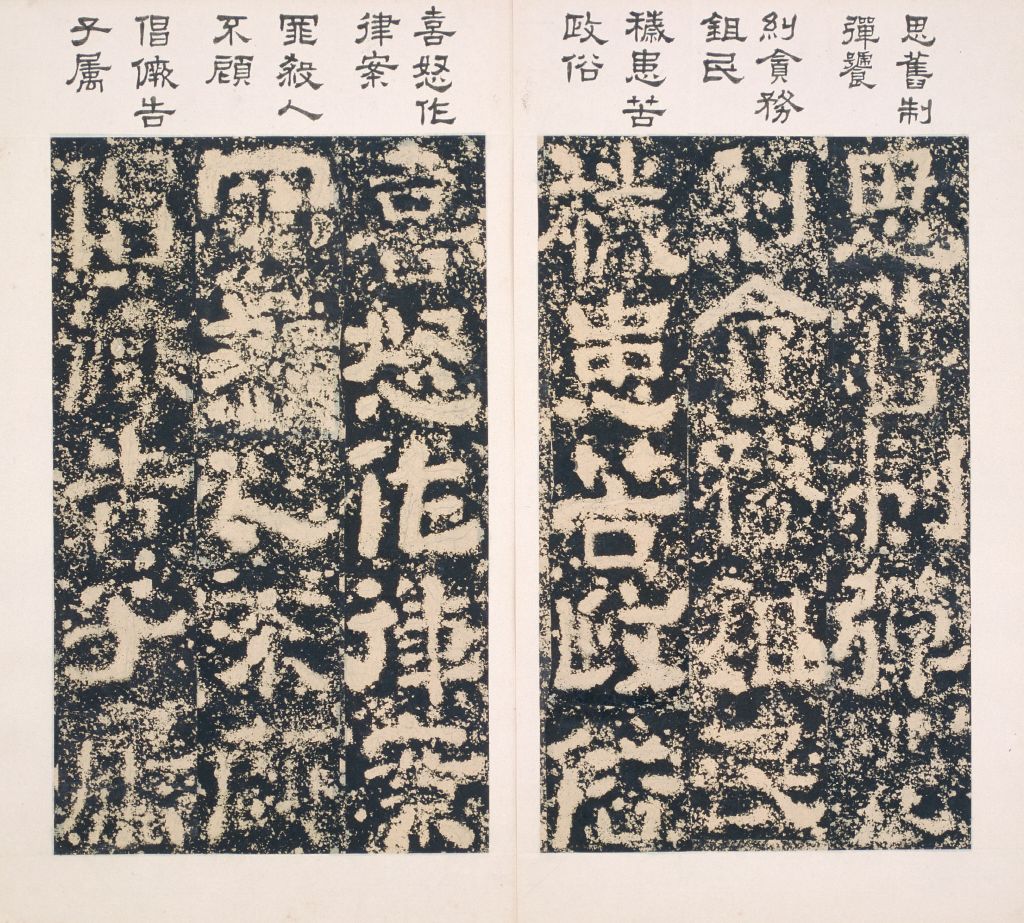 思舊制
彈饕
糾貪務
鉏民
穢患苦
政俗
思舊制彈饕
糾貪務鉏民
穢患苦政俗
喜怒作
律案
罪殺人
不顧
倡告
子属
喜怒作律案
罪殺人不顧
倡告子属